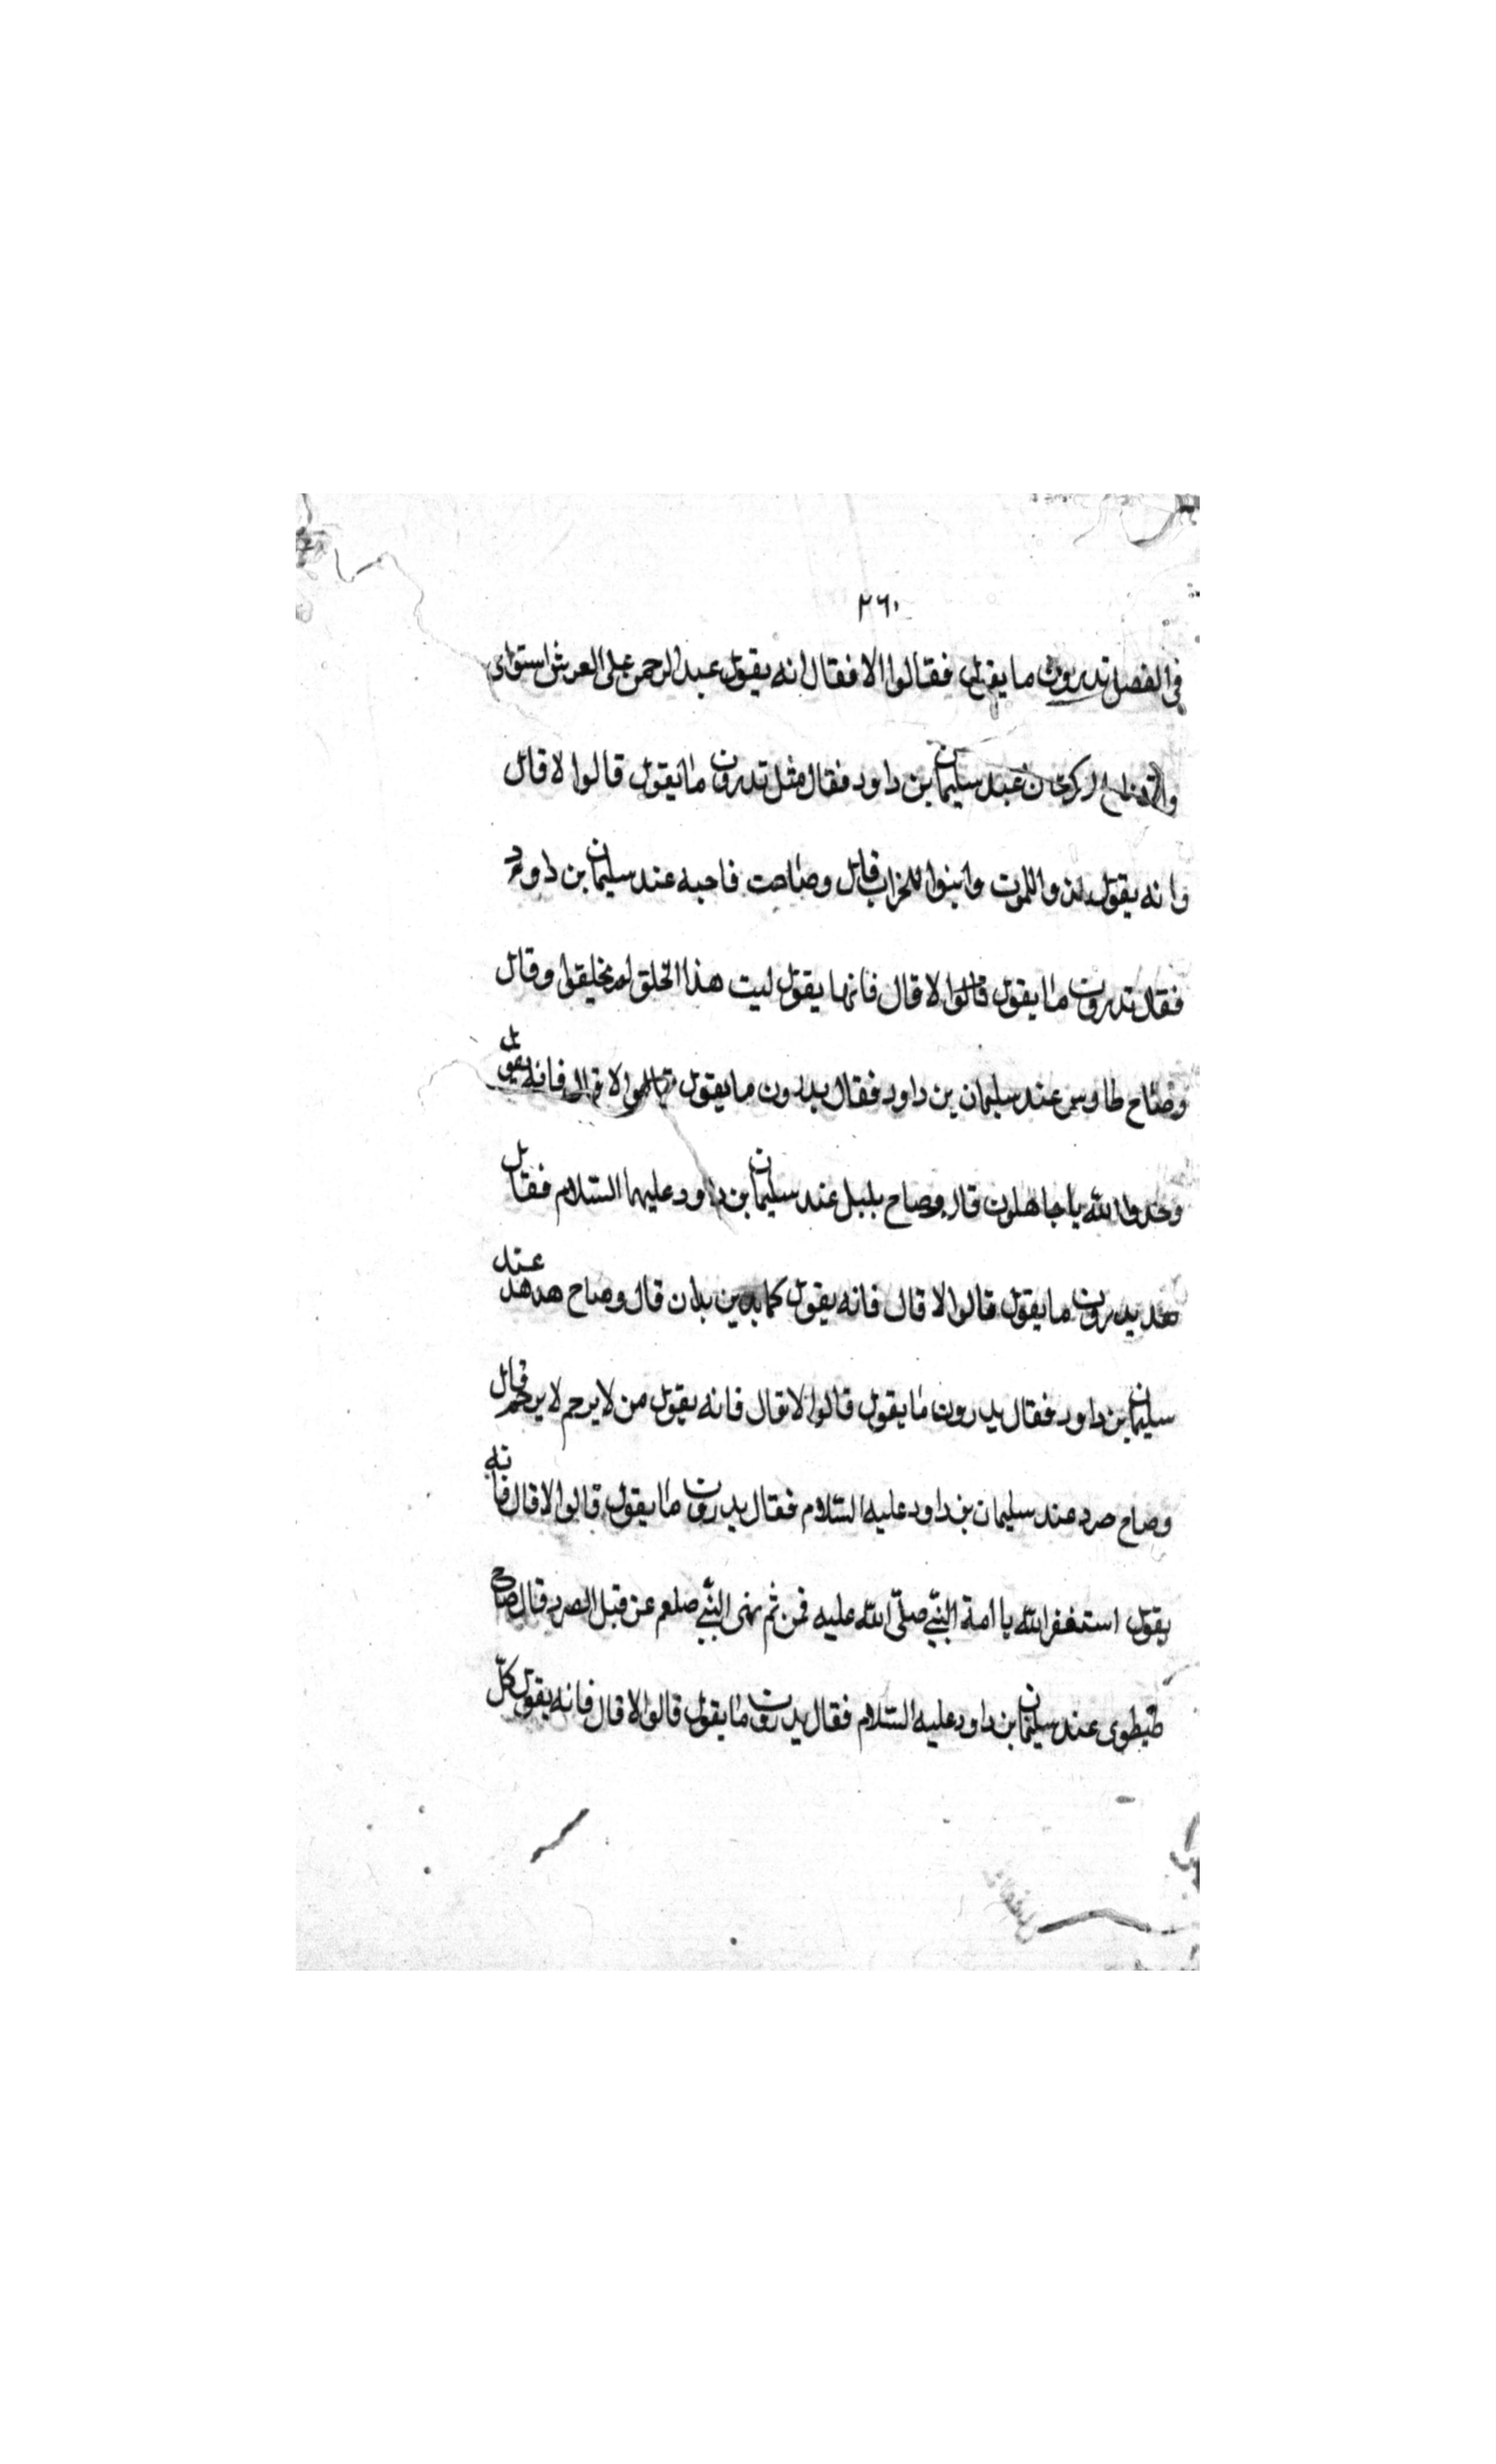 ٢٦٠
في الفصل تدرون ما يقول فقالوا لا فقال انه يقول عبد الرحمن على العرش استوى
عند سليمان بن داود فقال مثل تدرون ما يقول قالوا لا قال
وانه يقول لدوا للموت وابنوا للخراب قال وصاحت فاحبه عند سليمان بن داود
فقال تدرون ما يقول قالوا لا قال فانها يقول ليت هذا الخلق لم يخليقوا وقال
وصاح طاوس عند سليمان بن داود فقال يدرون ما يقول قالوا لا قال فانه يقول
وحدوا الله يا جاهلون قال وصاح بلبل عند سليمان بن داود عليهما السلام فقال
يدرون ما يقول قالوا لا قال فانه يقول كما يدين يدان قال وصاح هدهد عند
سليمان بن داود فقال يدرون ما يقول قالوا لا قال فانه يقول من لا يرحم لا يرحم قال
وصاح صرد عند سليمان بن داود عليه السلام فقال يدرون ما يقول قالوا لا قال فانه
يقول استغفر الله يا امة النبي صلى الله عليه فمن ثم نهى النبي صلعم عن قتل الصرد قال صاح
طيطوى عند سليمان بن داود عليه السلام فقال يدرون ما يقول قالوا لا قال فانه يقول كل